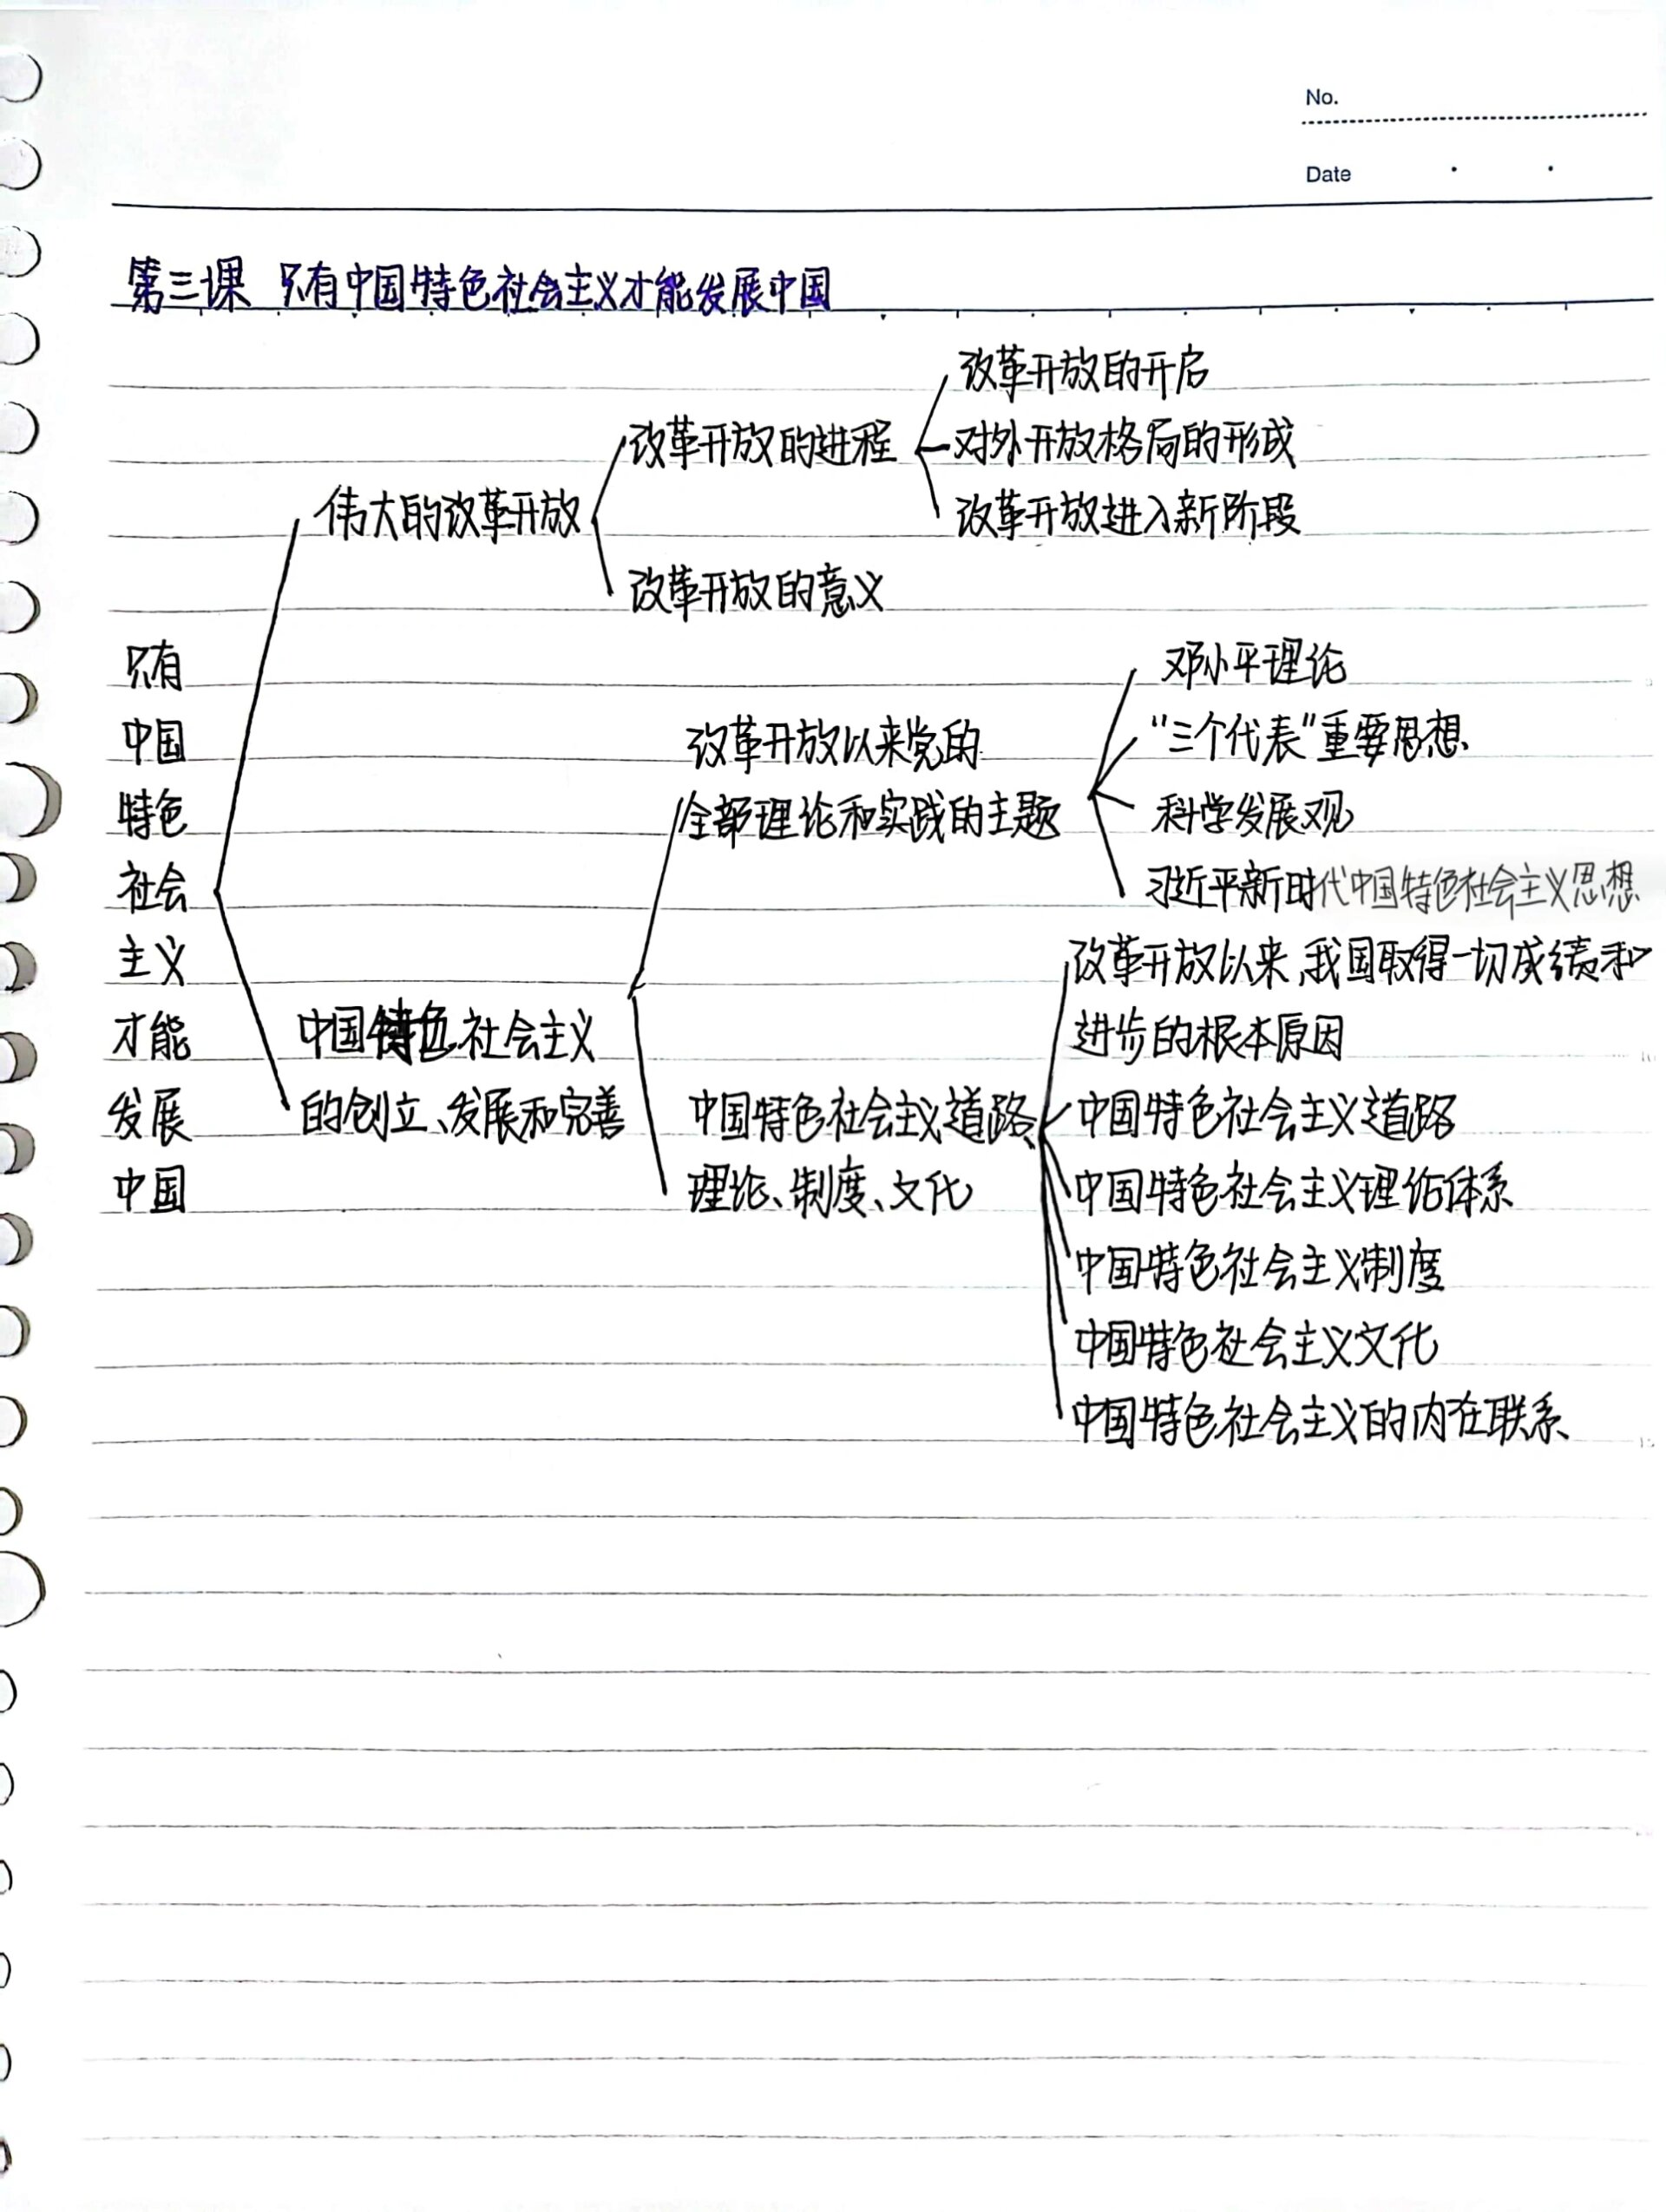 No.
Date
第三课 只有中国特色社会主义才能发展中国
改革开放的开启
改革开放的进程
对外开放格局的形成
伟大的改革开放
改革开放进入新阶段
改革开放的意义
只有
中国
特色
社会
主义
才能
发展
中国
邓小平理论
改革开放以来党的
全部理论和实践的主题
“三个代表”重要思想
科学发展观
习近平新时代中国特色社会主义思想
中国特色社会主义
的创立、发展和完善
中国特色社会主义道路、
理论、制度、文化
改革开放以来,我国取得一切成绩和
进步的根本原因
中国特色社会主义道路
中国特色社会主义理论体系
中国特色社会主义制度
中国特色社会主义文化
中国特色社会主义的内在联系